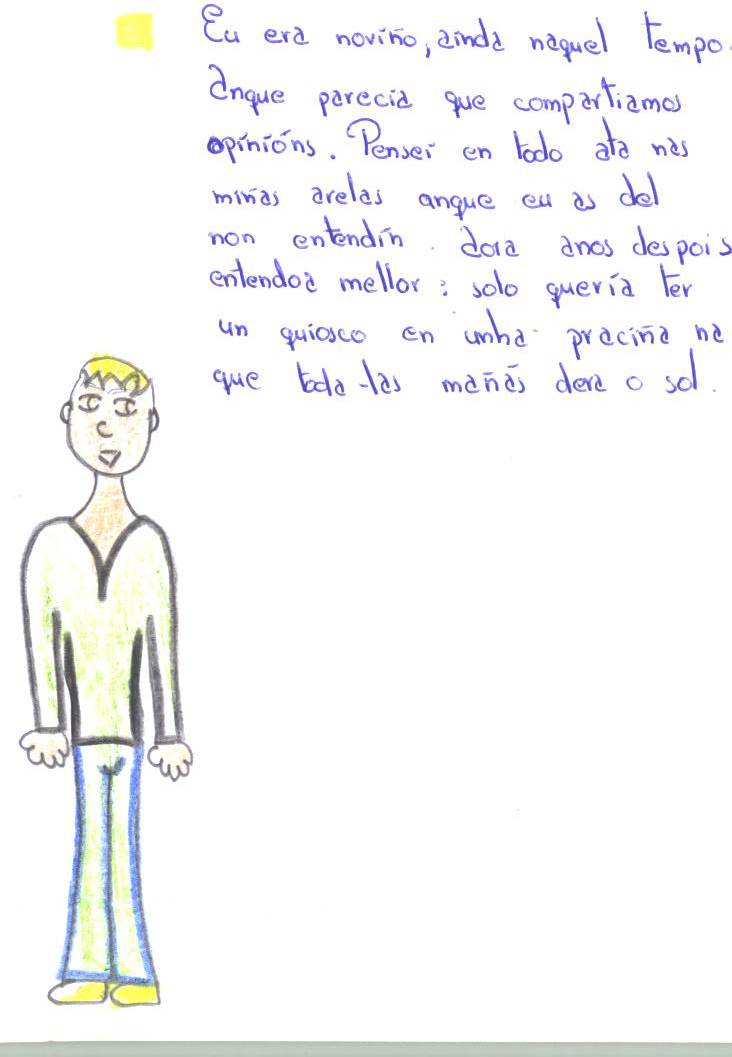 Eu era noviño, ainda naquel tempo.
anque parecía que compartiamos
opinións. Pensei en todo ata nas
miñas arelas anque eu as del
non entendín. Aora anos despois
entendoa mellor: solo quería ter
un quiosco en unha praciña na
que toda-las mañás dera o sol.